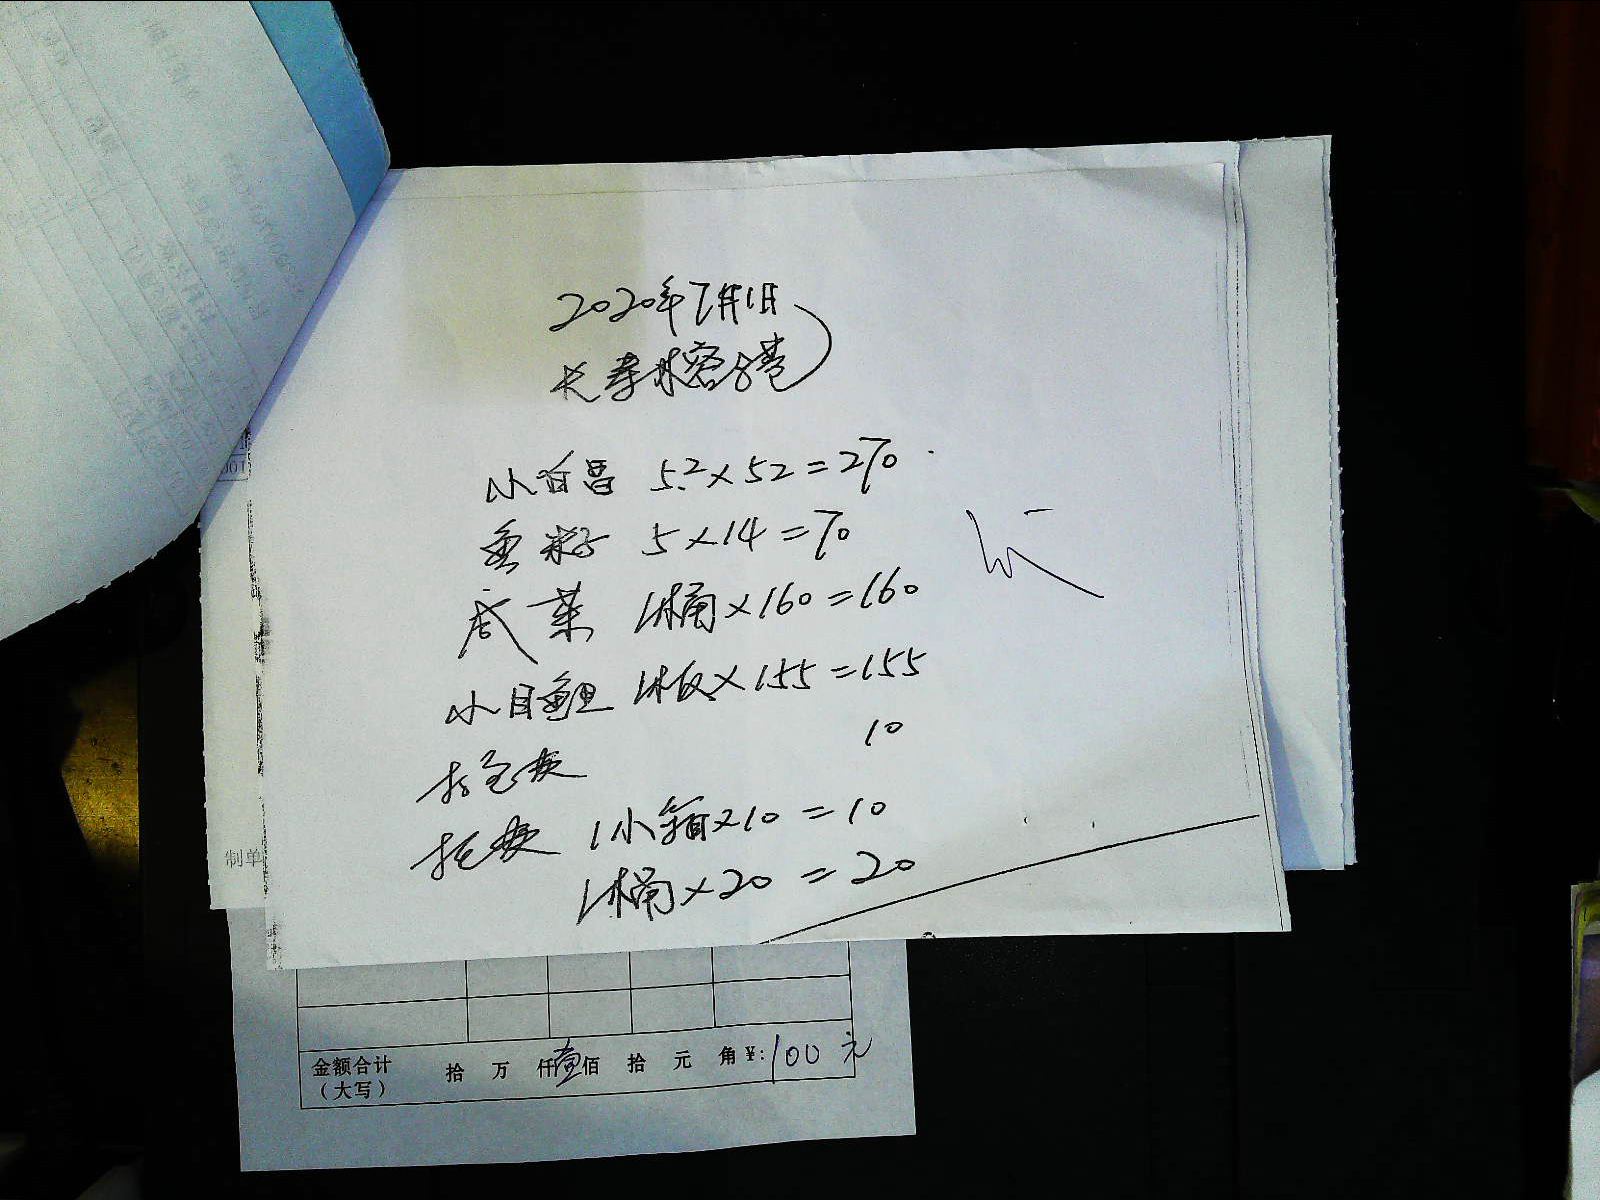 2020年7月1日
长寿林容8巷
小白昌 5.2×52=270
鱼籽 5×14=70
咸菜 1桶×160=160
小目鱼 1板×155=155
打包费 10
托费 1小箱×10=10
1桶×20=20
制单
金额合计 拾 万 仟壹佰 拾 元 角¥:100元
（大写）